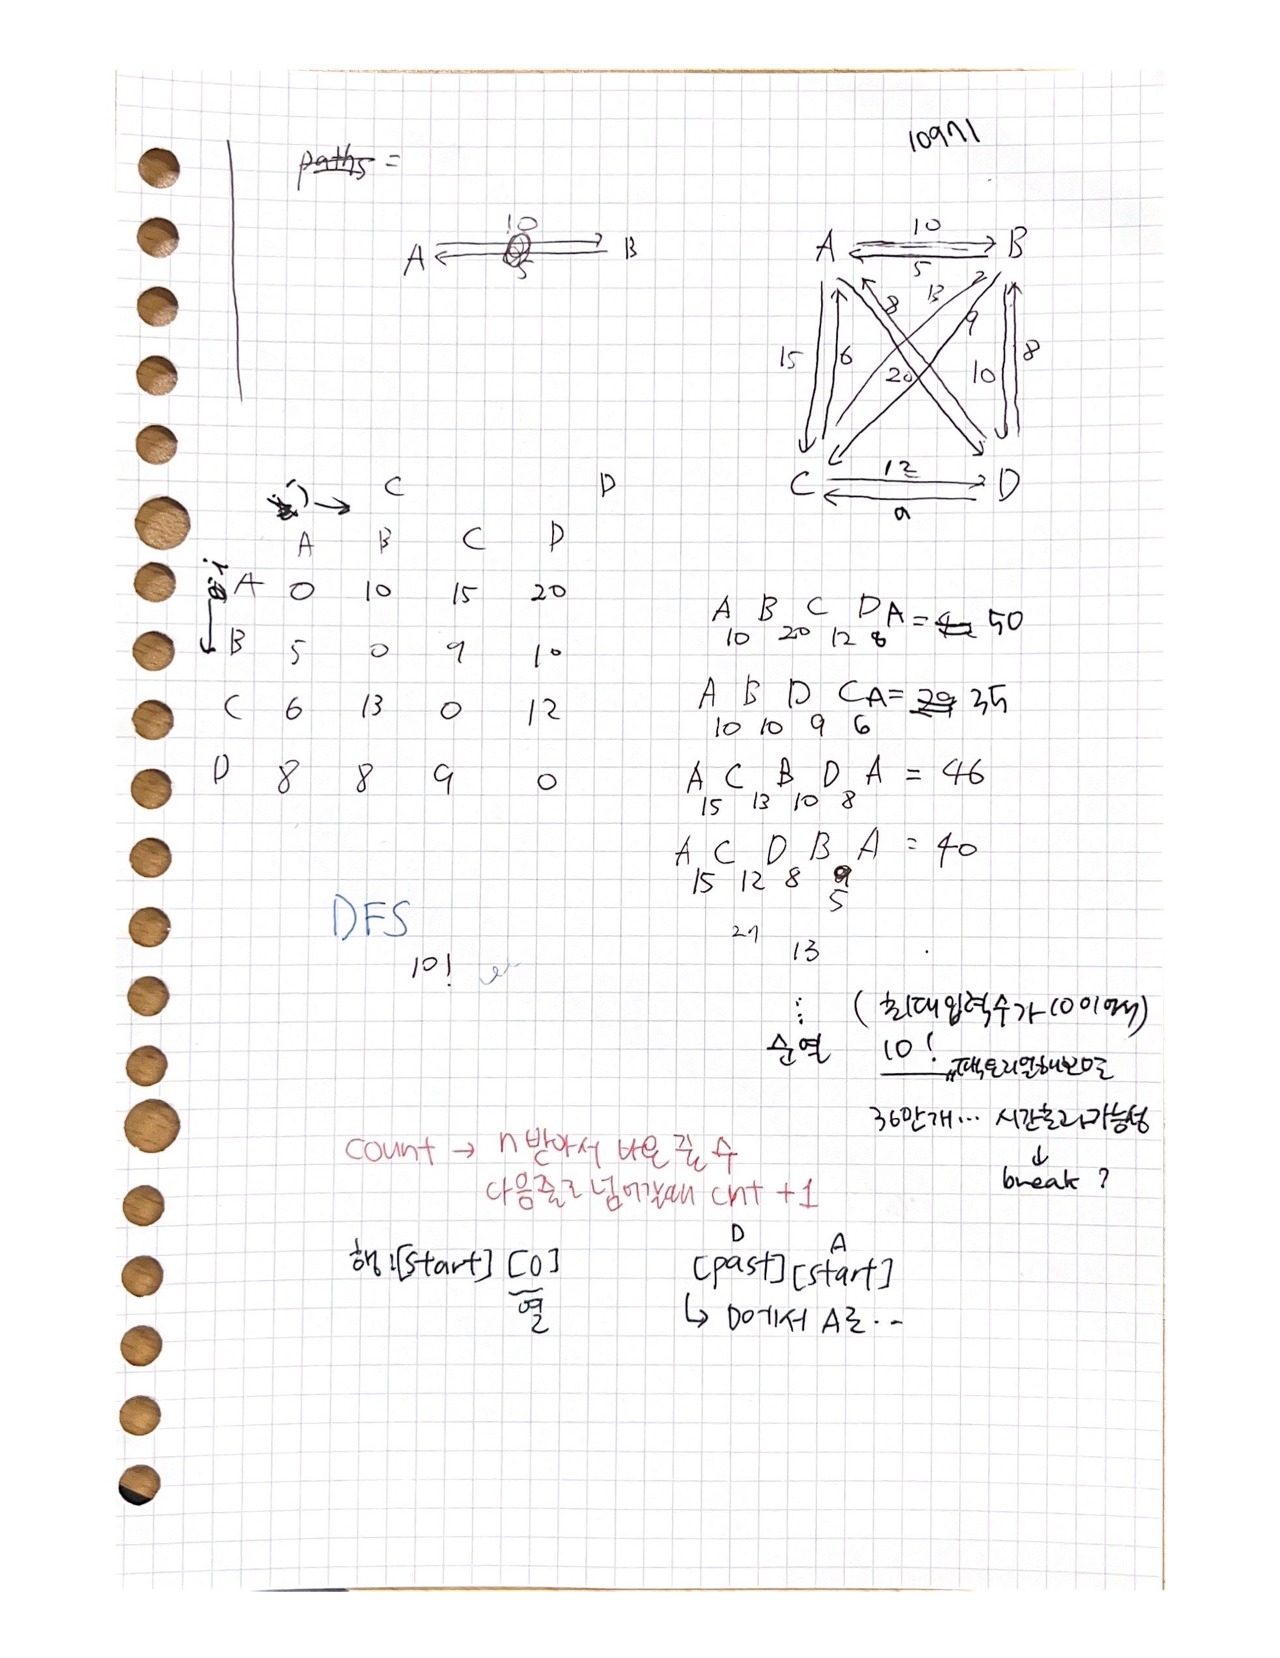 10971
paths =
A 10 B
5
A 10 B
5
8 13 9
15 6 20 10 8
C 12 D
9
j → C D
A B C D
i A 0 10 15 20
B 5 0 9 10
C 6 13 0 12
D 8 8 9 0
A B C D A = 50
10 20 12 8
A B D C A = 29 35
10 10 9 6
A C B D A = 46
15 13 10 8
A C D B A = 40
15 12 8 5
DFS
10!
27
13
순열
(최대입력수가 10이어서)
10! 팩토리얼해보므로
36만개... 시간초과가능성
↓
break ?
count → n 받아서 나온 줄 수
다음줄로 넘어갈때 cnt +1
행:[start] [0]
열
D A
[past][start]
↳ D에서 A로..